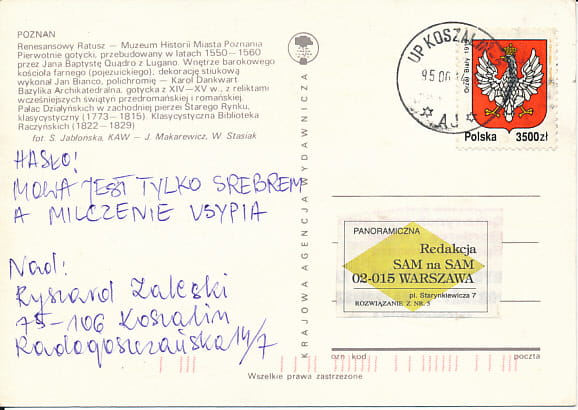 POZNAŃ
Renesansowy Ratusz — Muzeum Historii Miasta Poznania
Pierwotnie gotycki, przebudowany w latach 1550—1560
przez Jana Baptystę Quadro z Lugano. Wnętrze barokowego
kościoła farnego (pojezuickiego), dekorację stiukową
wykonał Jan Bianco, polichromię — Karol Dankwart
Bazylika Archikatedralna, gotycka z XIV—XV w., z reliktami
wcześniejszych świątyń przedromańskiej i romańskiej.
Pałac Działyńskich w zachodniej pierzei Starego Rynku,
klasycystyczny (1773—1815). Klasycystyczna Biblioteka
Raczyńskich (1822—1829)
fot. S. Jabłońska, KAW — J. Makarewicz, W. Stasiak
HASŁO!
MOWA JEST TYLKO SREBREM
A MILCZENIE USYPIA
Nad:
Ryszard Zaleski
75-106 Koszalin
Radogoszczańska 14/7
KRAJOWA AGENCJA WYDAWNICZA
UP KOSZALIN
95.06
AJ
Orzeł Biały
Polska 3500zł
PANORAMICZNA
Redakcja
SAM na SAM
02-015 WARSZAWA
pl. Starynkiewicza 7
ROZWIĄZANIE Z NR. 5
ozn kod
poczta
Wszelkie prawa zastrzeżone